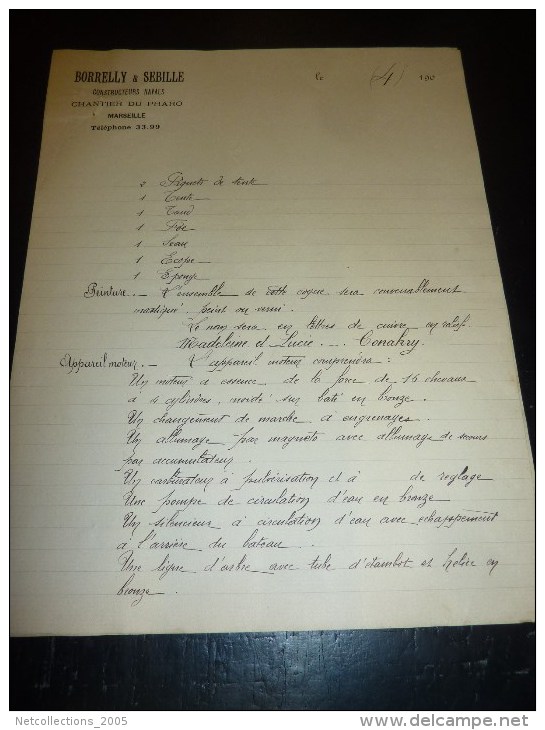 BORRELLY & SEBILLE
CONSTRUCTEURS NAVALS
CHANTIER DU PHARO
MARSEILLE
Téléphone 33.99
le (4) 190
2 Piquets de tente
1 Tente
1 Taud
1
1 Seau
1 Ecope
1 Eponge
Peinture. - L'ensemble de cette coque sera convenablement
mastiqué peint ou verni.
Le nom sera en lettres de cuivre en relief
Madeleine et Lucie . - . Conakry.
Appareil moteur. - L'appareil moteur comprendra :
Un moteur à essence de la force de 16 chevaux
à 4 cylindres, monté sur bati en bronze.
Un changement de marche à engrenages.
Un allumage par magnéto avec allumage de secours
par accumulateur.
Un carburateur à pulvérisation et à de reglage
Une pompe de circulation d'eau en bronze
Un silencieux à circulation d'eau avec echappement
à l'arrière du bateau.
Une ligne d'arbre avec tube d'étambot et hélice en
bronze.
Netcollections_2005
delcampe.net